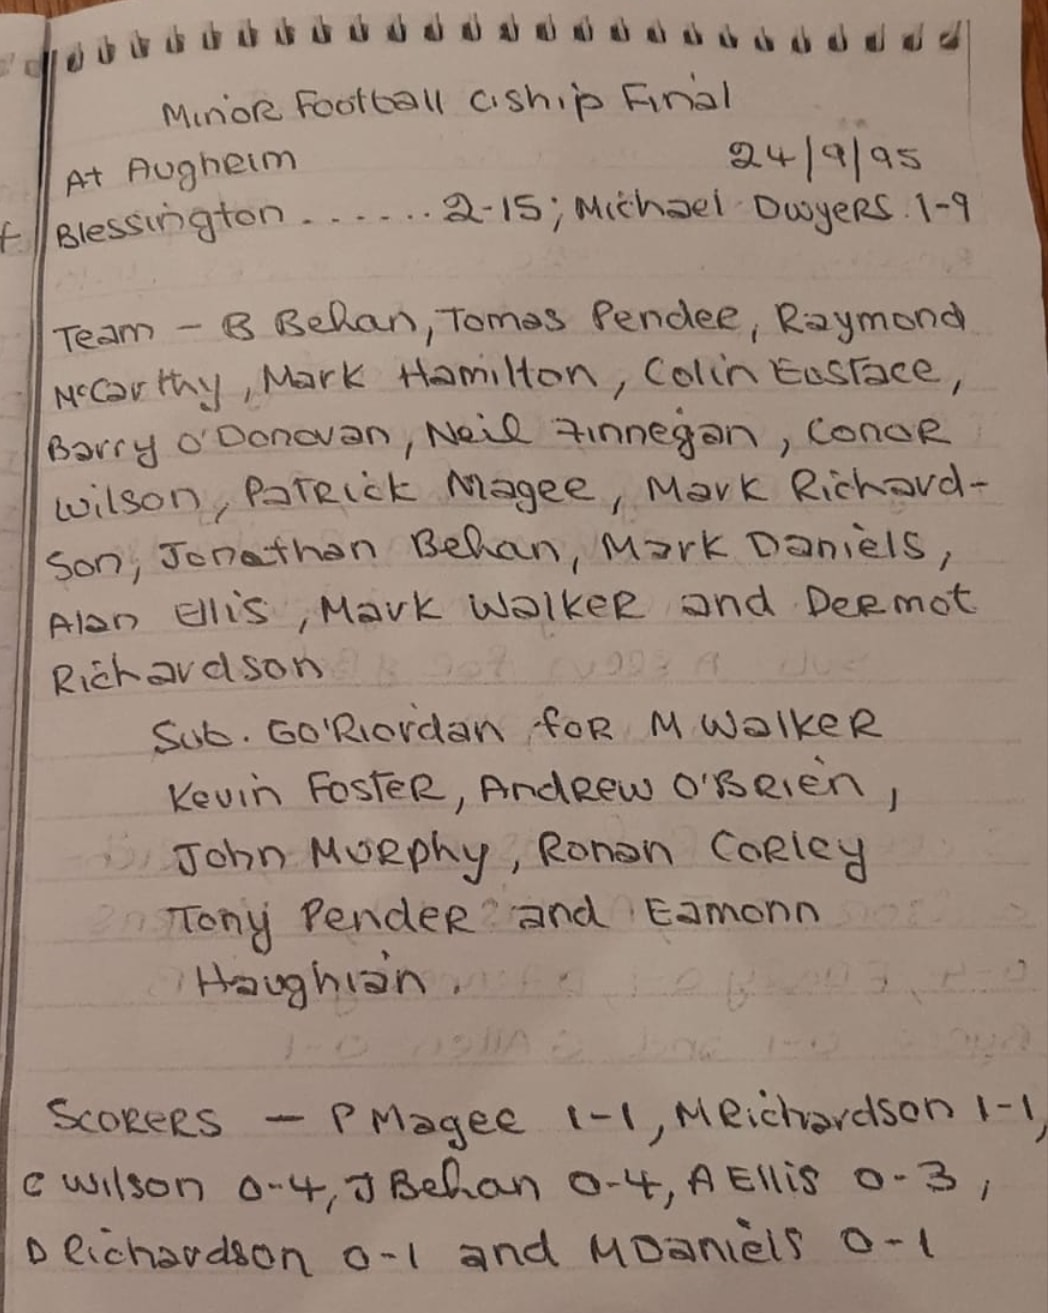 Minor Football C'ship Final
At Augheim 24/9/95
Blessington ...... 2-15; Michael Dwyers 1-9
Team - B Behan, Tomas Pendee, Raymond
McCarthy, Mark Hamilton, Colin Eustace,
Barry O'Donovan, Neil Finnegan, Conor
Wilson, Patrick Magee, Mark Richard-
son, Jonathan Behan, Mark Daniels,
Alan Ellis, Mark Walker and Dermot
Richardson
Sub. G O'Riordan for M Walker
Kevin Foster, Andrew O'Brien,
John Murphy, Ronan Corley
Tony Pender and Eamonn
Haughian.
Scorers - P Magee 1-1, M Richardson 1-1,
C Wilson 0-4, J Behan 0-4, A Ellis 0-3,
D Richardson 0-1 and M Daniels 0-1